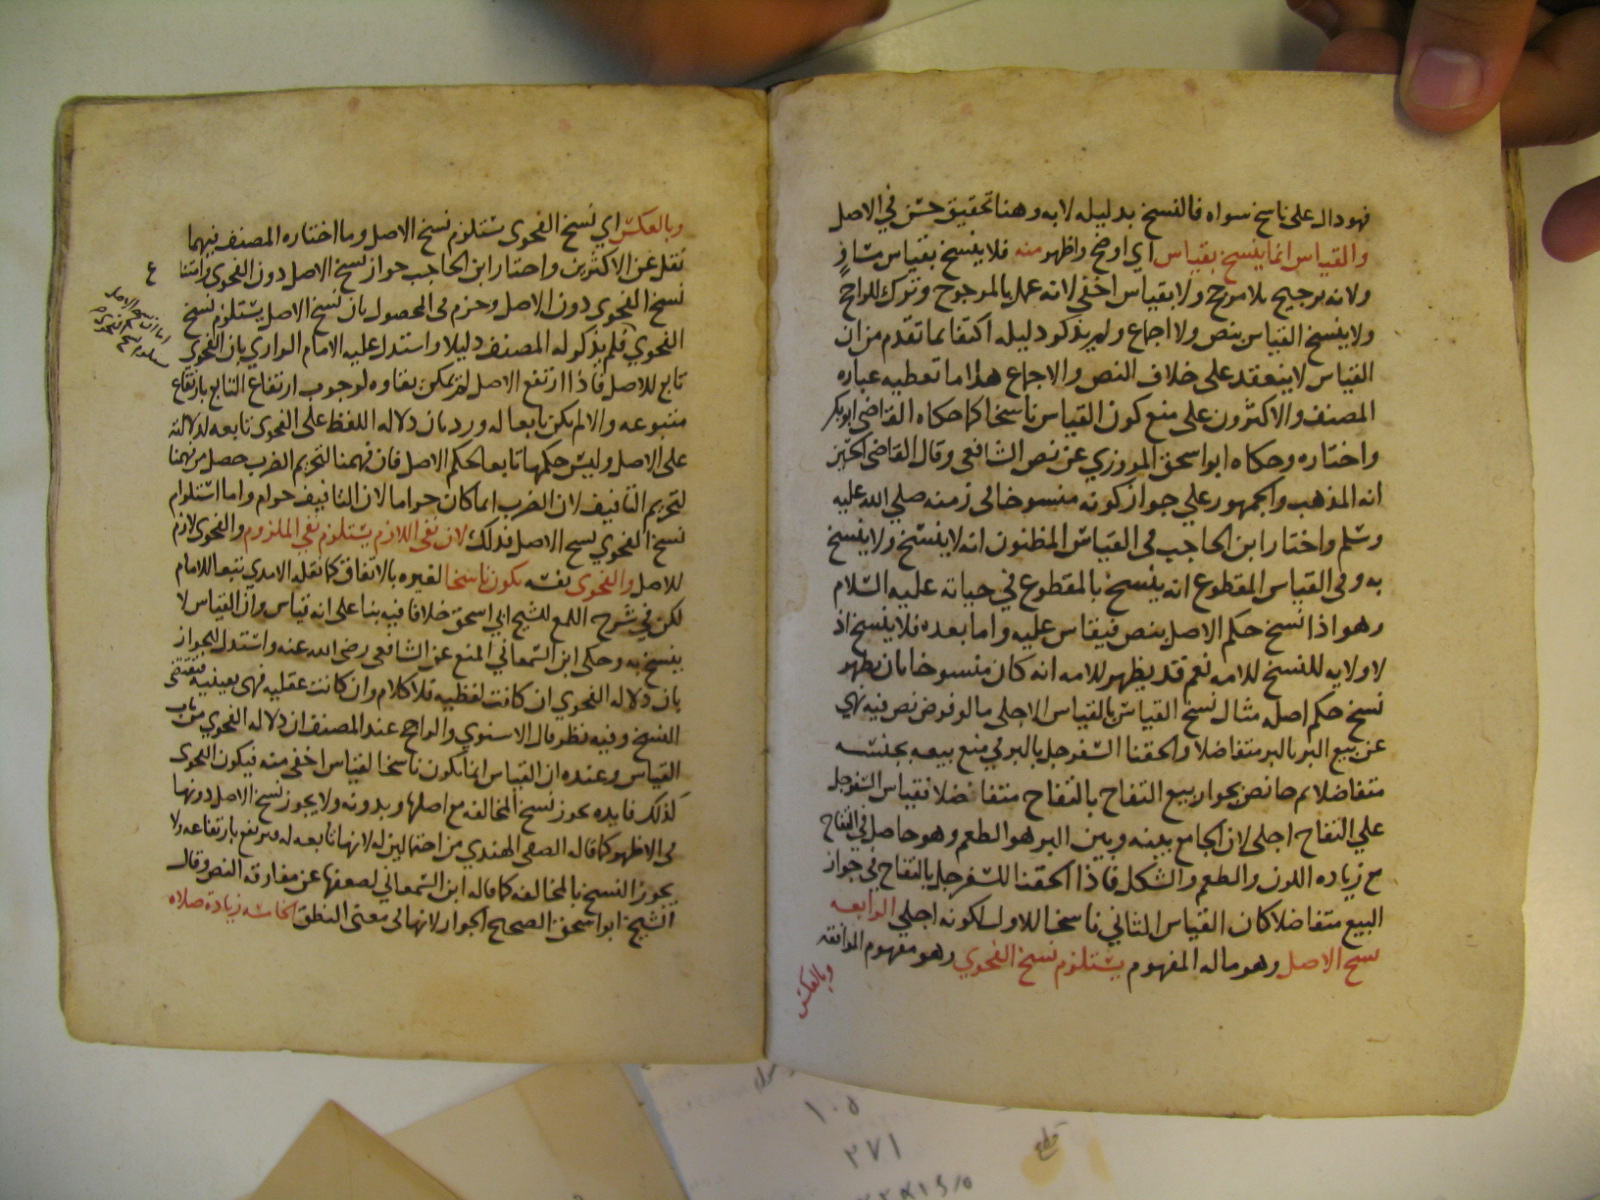 فهو دال على ناسخ سواه فالنسخ بدليله لا به وهنا تحقيق حسن في الاصل
والقياس انما ينسخ بقياس اي اوضح واظهر منه فلا ينسخ بقياس مساوٍ
ولانه ترجيح بلا مرجح ولا بقياس اخفى لانه عمل بالمرجوح وترك للراجح
ولا ينسخ القياس بنص ولا اجماع ولم يذكر دليله اكتفا بما تقدم من ان
القياس لا ينعقد على خلاف النص والاجماع هذا ما تعطيه عباره
المصنف والاكثرون على منع كون القياس ناسخا كما حكاه القاضي ابو بكر
واختاره وحكاه ابو اسحق المروزي عن نص الشافعي وقال القاضي الحسين
انه المذهب والجمهور علي جواز كونه منسوخا في زمنه صلي الله عليه
وسلم واختار ابن الحاجب في القياس المظنون انه لا ينسخ ولا ينسخ
به وفى القياس المقطوع انه ينسخ بالمقطوع في حياته عليه السلام
وهو اذا نسخ حكم الاصل بنص فيقاس عليه واما بعده فلا ينسخ اذ
لا ولايه للنسخ للامه نعم قد يظهر للامه انه كان منسوخا بان يظهر
نسخ حكم اصله مثال نسخ القياس بالقياس الاجلي ما لو فرض نص فيه نهي
عن بيع البر بالبر متفاضلا والحقنا السفرجل بالبر في منع بيعه بجنسه
متفاضلا ثم جا نص بجواز بيع التفاح بالتفاح متفاضلا فقياس السفرجل
علي التفاح اجلي لان الجامع بينه وبين البر هو الطعم وهو حاصل في التفاح
مع زياده اللون والطعم والشكل فاذا الحقنا السفرجل بالتفاح في جواز
البيع متفاضلا كان القياس الثاني ناسخا للاول لكونه اجلي الرابعه
نسخ الاصل وهو ماله المفهوم يستلزم نسخ الفحوي وهو مفهوم الموافقه
وبالعكس
وبالعكس اي نسخ الفحوى يستلزم نسخ الاصل وما اختاره المصنف فيهما
نقل عن الاكثرين واختار ابن الحاجب جواز نسخ الاصل دون الفحوى وامتناع
نسخ الفحوى دون الاصل وجزم في المحصول بان نسخ الاصل يستلزم نسخ
الفحوي فلم يذكر له المصنف دليلا واستدل عليه الامام الرازي بان الفحوي
تابع للاصل فاذا ارتفع الاصل لم يمكن بقاوه لوجوب ارتفاع التابع بارتفاع
متبوعه والا لم يكن تابعا له ورد بان دلاله اللفظ على الفحوى تابعه لدلالته
على الاصل وليس حكمها تابعا لحكم الاصل فان فهمنا لتحريم الضرب حصل من فهمنا
لتحريم التافيف لا ان الضرب انما كان حراما لان التافيف حرام واما استلزام
نسخ الفحوي نسخ الاصل فذلك لان نفى اللازم يستلزم نفي الملزوم والفحوى لازم
للاصل والفحوى نفسه يكون ناسخا لغيره بالاتفاق كما نقله الامدي تبعا للامام
لكن في شرح اللمع للشيخ ابي اسحق خلافا فيه بنا على انه قياس وان القياس لا
ينسخ به وحكى ابن السمعاني المنع عن الشافعى رضى الله عنه واستدل للجواز
بان دلاله الفحوي ان كانت لفظيه فلا كلام وان كانت عقليه فهى يقينيه فتقتضى
النسخ وفيه نظر قال الاسنوي والراجح عند المصنف ان دلاله الفحوي من باب
القياس وعنده ان القياس انما يكون ناسخا لقياس اخفى منه فيكون الفحوى
كذلك فايده يجوز نسخ المخالفه مع اصلها وبدونه ولا يجوز نسخ الاصل دونها
فى الاظهر كما قاله الصفي الهندي من احتمالين له لانها تابعه له فترتفع بارتفاعه ولا
يجوز النسخ بالمخالفه كما قاله ابن السمعاني لضعفها عن مقاومه النص وقال
الشيخ ابو اسحق الصحيح الجواز لانها في معنى النطق الخامسه زيادة صلاه
١٠٥
٢٧١